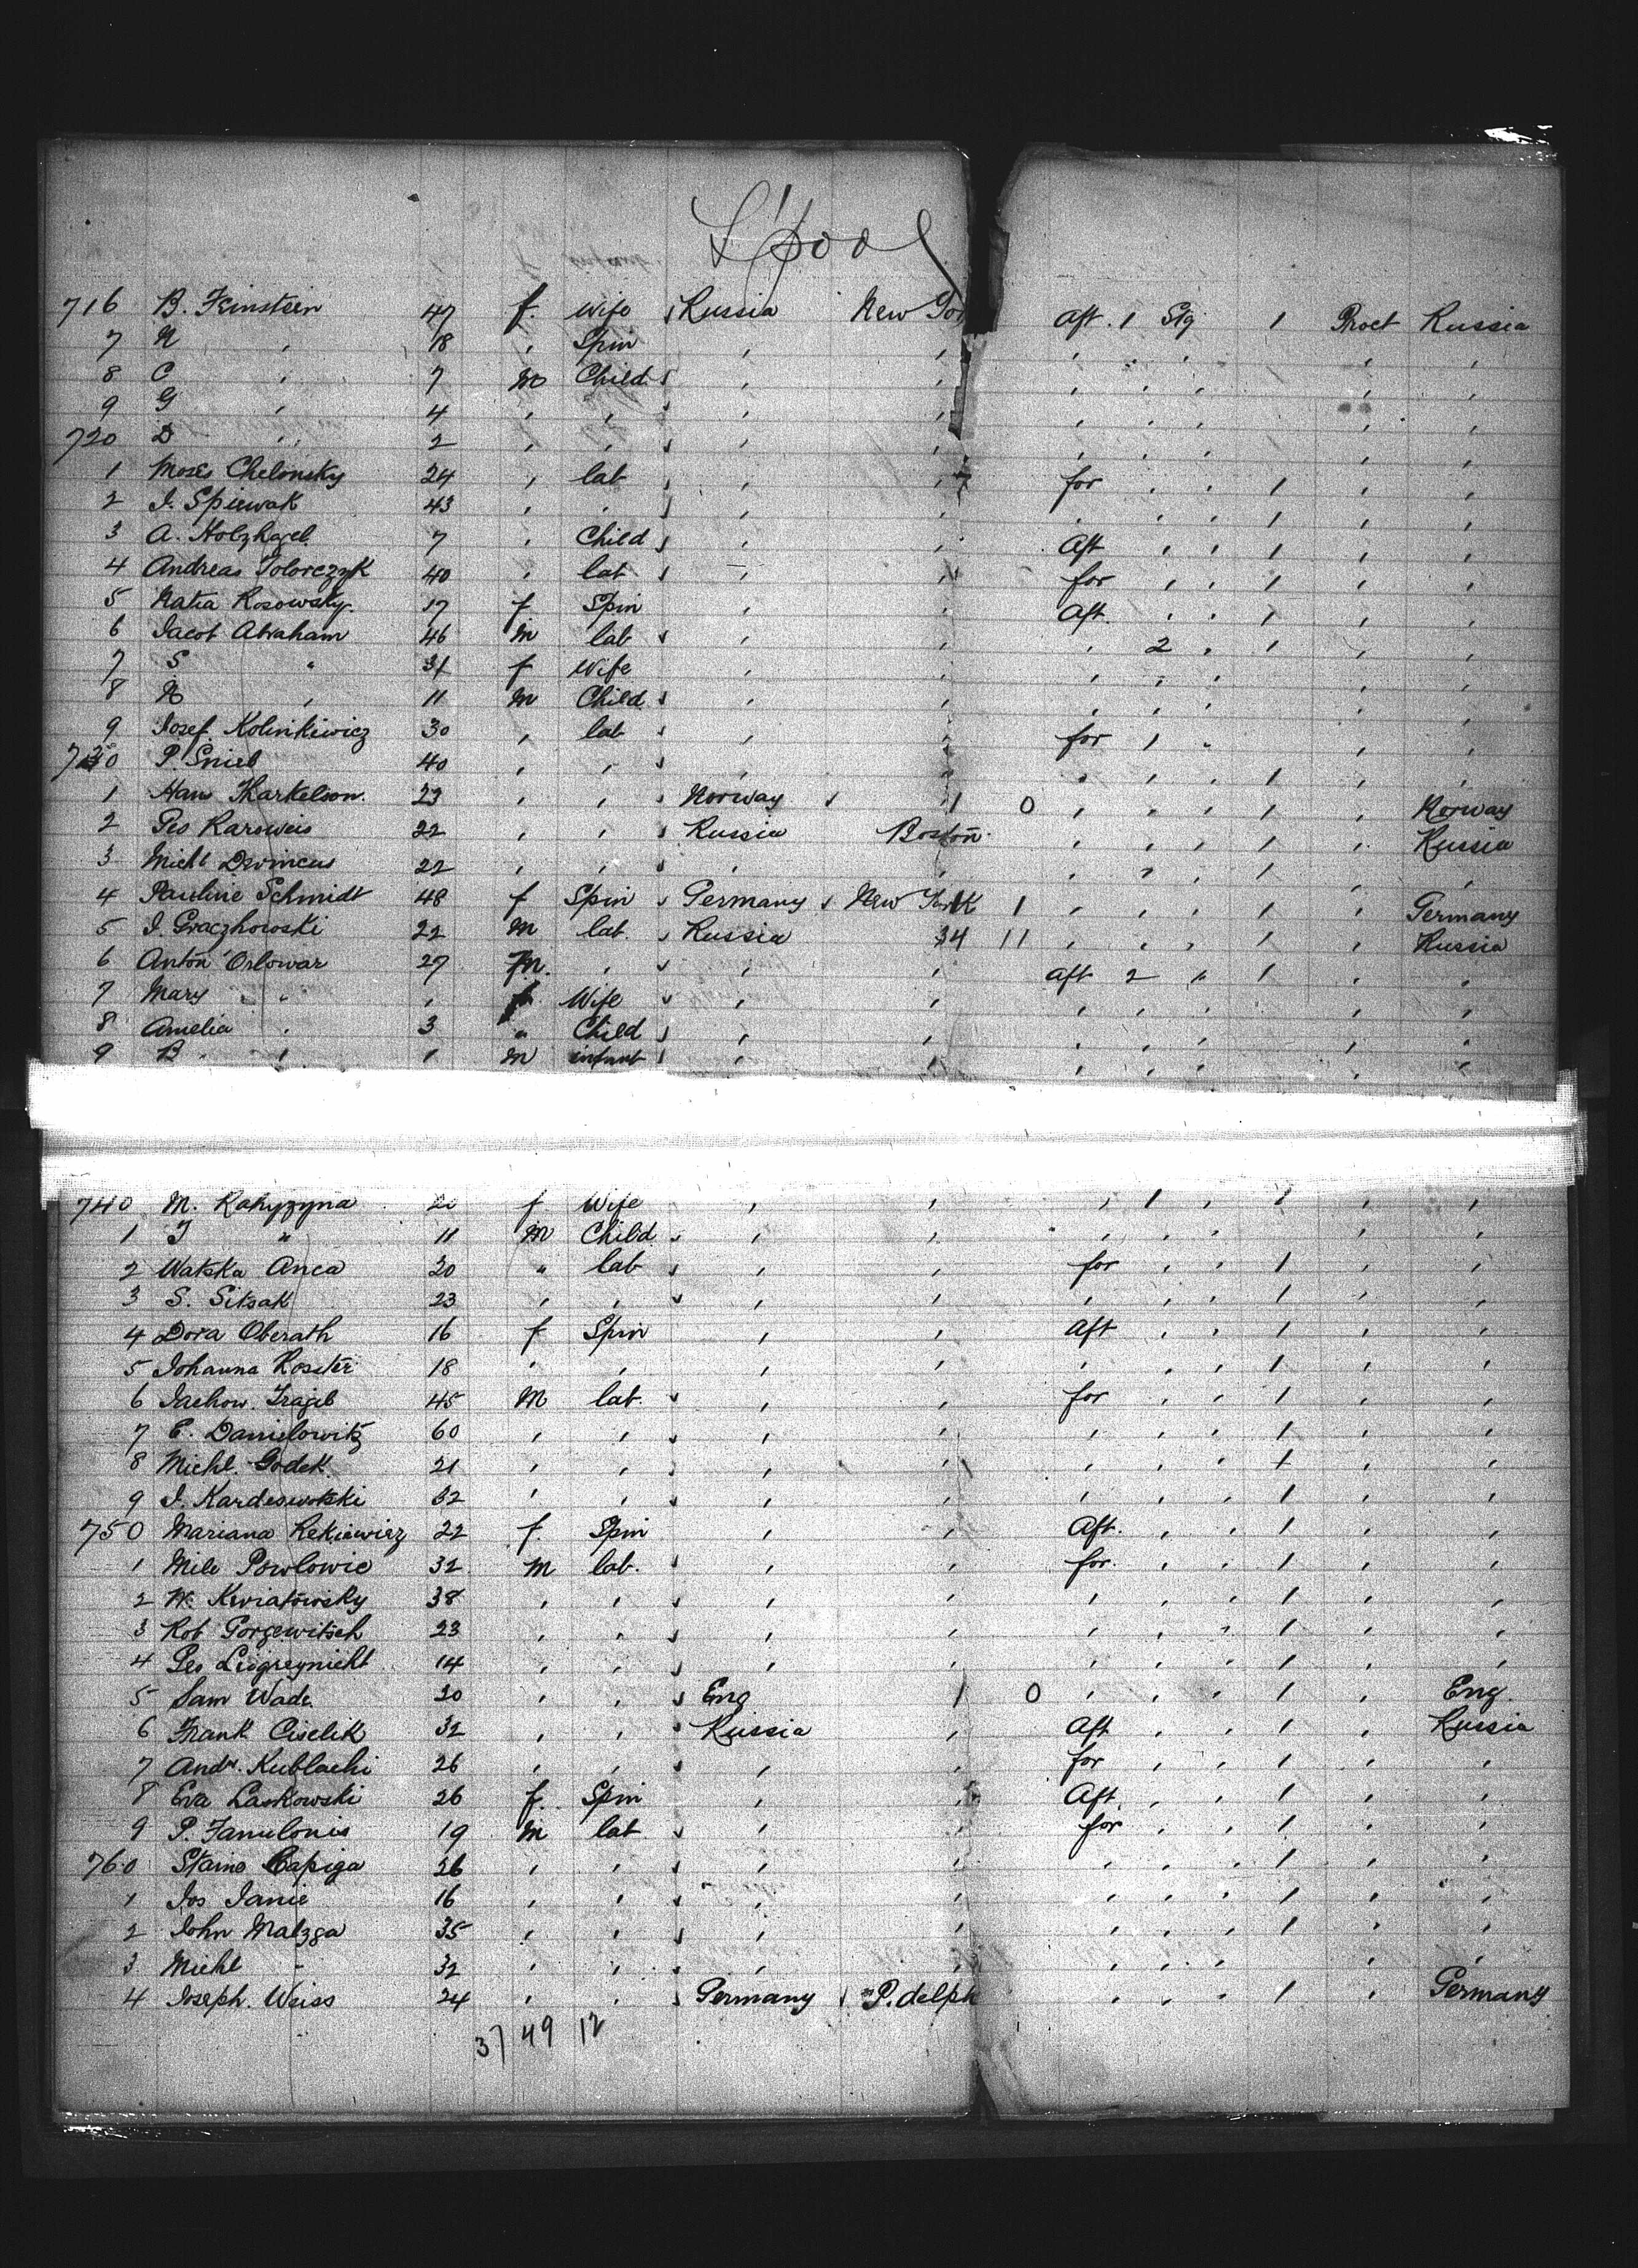 L'pool
716 B. Feinstein 47 f. Wife Russia New Yor Aft. 1 Stg 1 Proct Russia
7 N " 18 " Spin " " " " " " "
8 C " 7 m Child " " " " " " "
9 G " 4 " " " " " " " " "
720 D " 2 " " " " " " " " "
1 Moses Chelonsky 24 " lab " " for " " 1 " "
2 I. Spiewak 43 " " " " " " " 1 " "
3 A. Holzhagel 7 " Child " " Aft " " 1 " "
4 Andreas 40 " lab " " for " " 1 " "
5 Natia Rosowsky 17 f Spin " " Aft. " " 1 " "
6 Jacob Abraham 46 m lab " " " 2 " 1 " "
7 S " 31 f Wife " " " " " " "
8 N " 11 m Child " " " " " " "
9 Josef. Kolinkiewicz 30 " lab " " for 1 " " "
730 P Snieb 40 " " " " " " " 1 " "
1 Hans Tharkelson. 23 " " Norway 1 0 " " " 1 " Norway
2 Geo Karsweis 22 " " Russia Boston " " " 1 " Russia
3 Michl 22 " " " " " " 1 " "
4 Pauline Schmidt 48 f Spin Germany New York 1 " " " 1 " Germany
5 I. Graczhowski 22 m lab. Russia 34 11 " " " 1 " Russia
6 Anton Orlowar 27 m. " " " Aft 2 " 1 " "
7 Mary " " f Wife " " " " " " "
8 Amelia " 3 " Child " " " " " " "
9 B " 1 m infant " " " " " " "
740 M. Kahyzyna 20 f. Wife " " " 1 " 1 " "
1 J " 11 m Child " " " " " " "
2 Watska Anca 30 " lab " " for " " 1 " "
3 S. Sitsak 23 " " " " " " " 1 " "
4 Dora Oberath 16 f Spin " " Aft " " 1 " "
5 Johanna Koster 18 " " " " " " " 1 " "
6 Jachow. Trajeb 45 m lab. " " for " " 1 " "
7 E. Danielowitz 60 " " " " " " " 1 " "
8 Michl. Godek 21 " " " " " " " 1 " "
9 I. Kardeswotski 32 " " " " " " " 1 " "
750 Mariana Rekiewicz 22 f. Spin " " Aft. " " 1 " "
1 Mile Powlowic 32 m lab. " " for. " " 1 " "
2 W. Kwiatowsky 38 " " " " " " " 1 " "
3 Rob Gorgewitsch 23 " " " " " " " 1 " "
4 Geo 14 " " " " " " " 1 " "
5 Sam Wade. 20 " " Eng 1 0 " " " 1 " Eng.
6 Frank Ciselik 32 " " Russia " Aft " " 1 " Russia
7 Andw. Kublachi 26 " " " " for " " 1 " "
8 Eva Laskowski 26 f. Spin " " Aft " " 1 " "
9 P. Janulonis 19 m lab " " for " " 1 " "
760 Capiga 26 " " " " " " " 1 " "
1 Jos Janie 16 " " " " " " " 1 " "
2 John Malzga 35 " " " " " " " 1 " "
3 Michl " 32 " " " " " " " " "
4 Joseph. Weiss 24 " " Germany P.delph " " " 1 " Germany
37 49 12